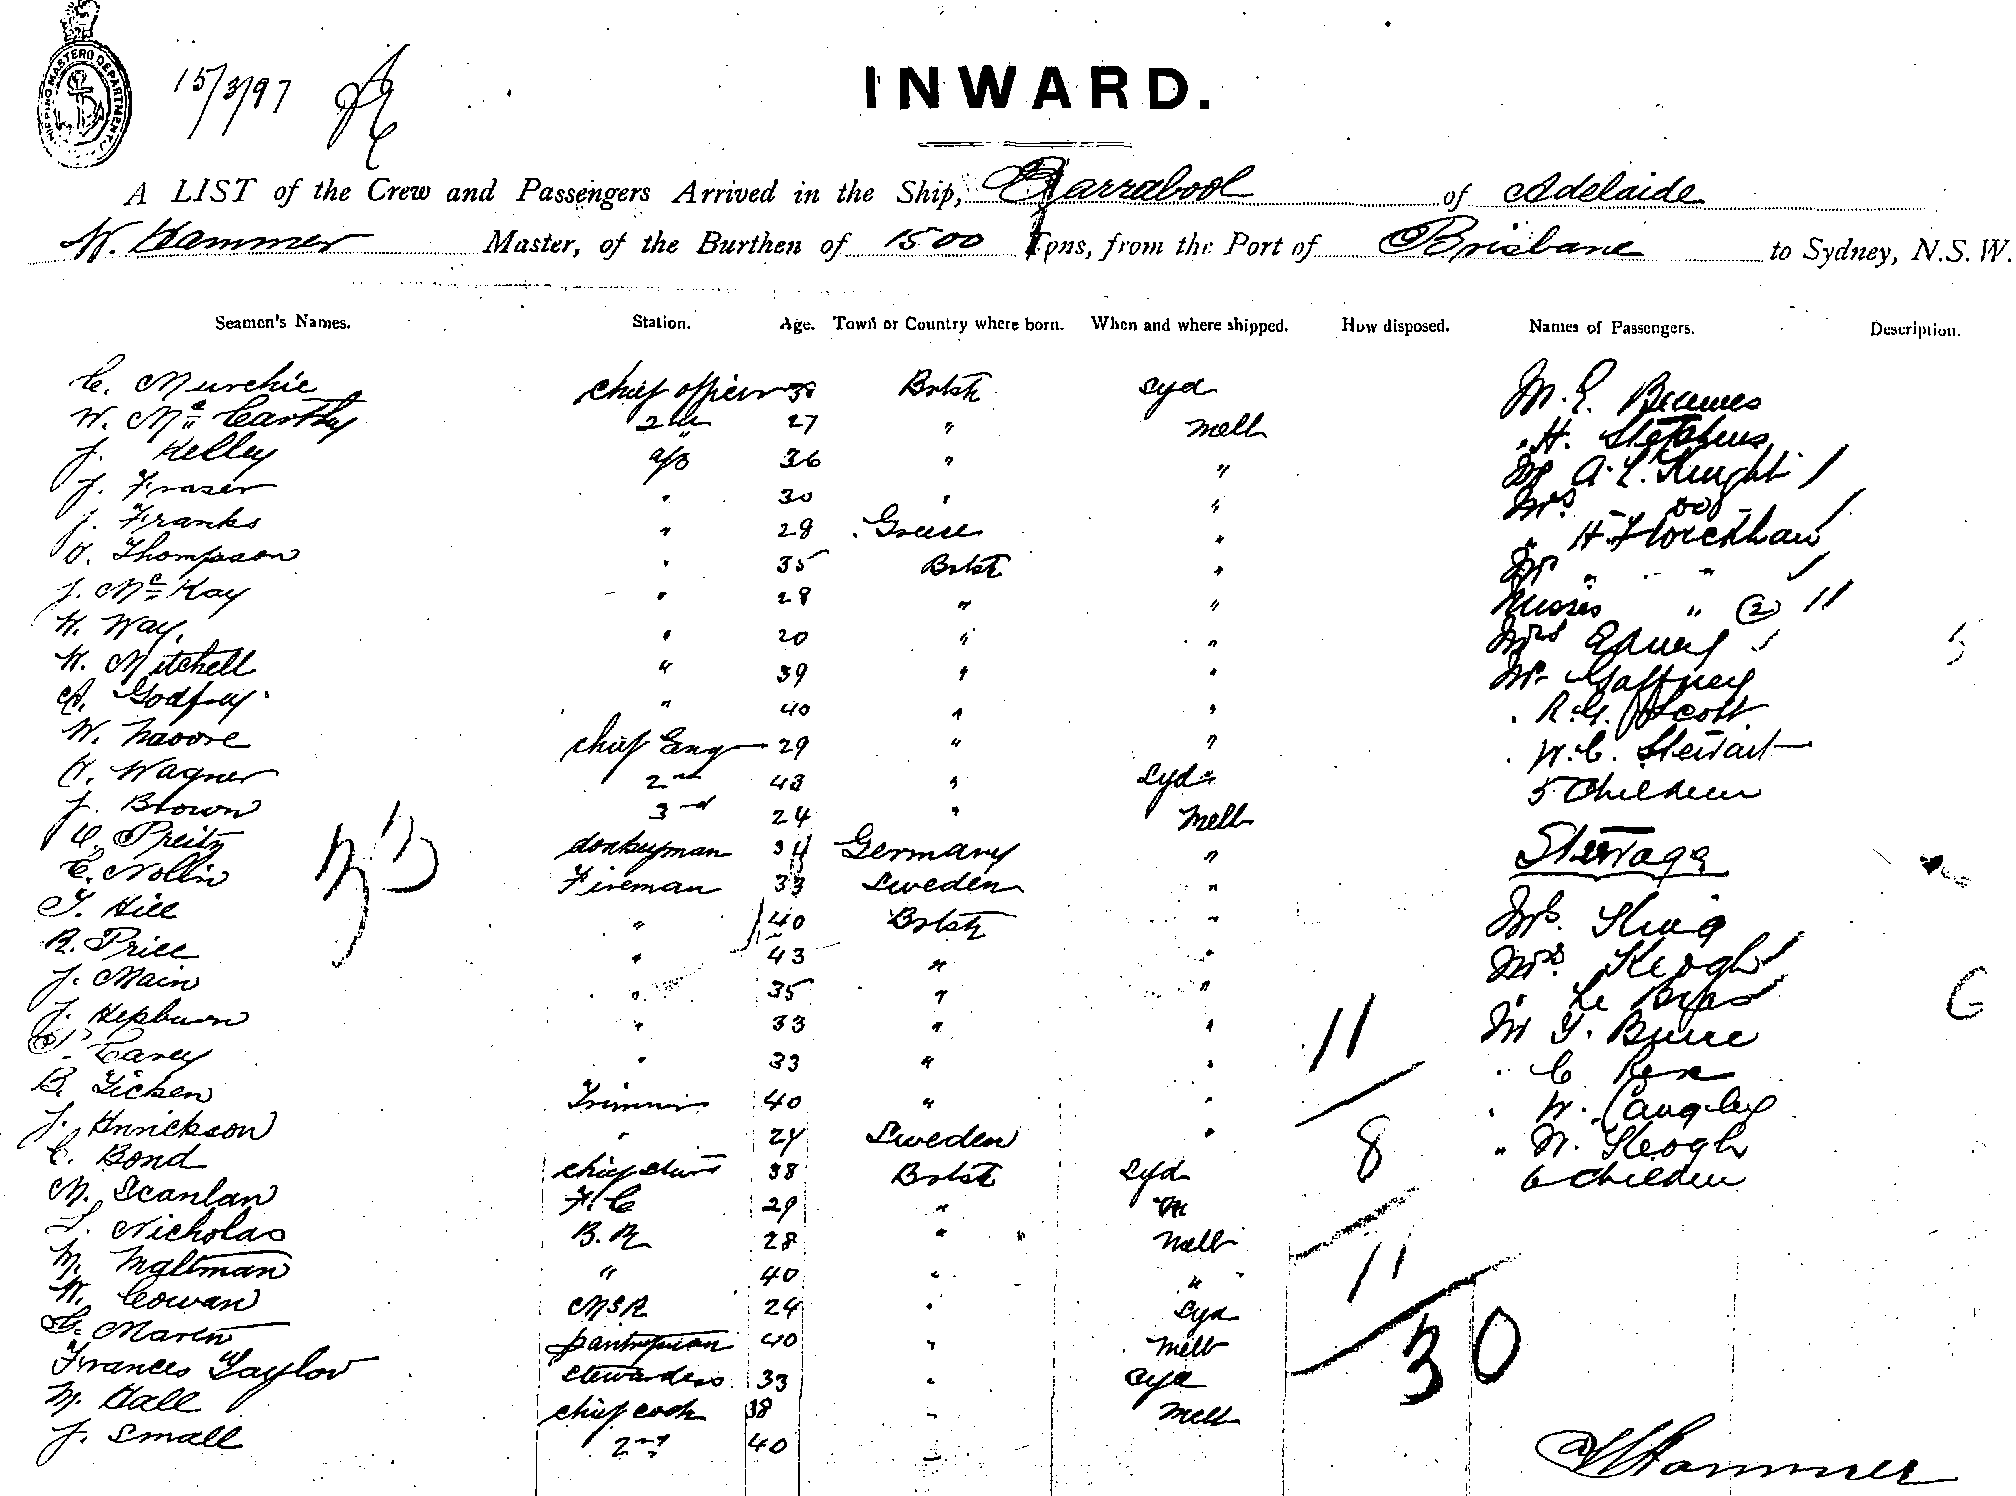 SHIPPING MASTERS DEPARTMENT.
15/3/97
INWARD.
A LIST of the Crew and Passengers Arrived in the Ship, Barrabool of Adelaide
W. Hammer Master, of the Burthen of 1500 Tons, from the Port of Brisbane to Sydney, N.S.W.
Seamen's Names. Station. Age. Town or Country where born. When and where shipped. How disposed. Names of Passengers. Description.
C. Murchie chief officer 38 Brtsh Syd M. E.
W. McCarthy 2nd 27 " Melb " H. Stephens
J. Kelley a/s 36 " " Mr A. L. Knight /
J. Fraser " 30 " " Mrs Do /
J. Franks " 29 Greece " " H
A. Thompson " 35 Brtsh " Mr " " /
J. McKay " 28 " " Misses " (2) //
H. Way. " 20 " " Mrs /
H. Mitchell " 39 " " Mr Gaffney
A. Godfrey " 40 " " " R. G. Scott
W. Moore chief Eng 29 " " " W. C. Stewart
A. Wagner 2nd 43 " Syd 5 Children
J. Brown 3rd 24 " Melb
C. Preitz donkeyman 34 Germany " Steerage
C. Nollin Fireman 33 Sweden "
T. Hill " 40 Brtsh " Mrs. King
R. Price " 43 " " Mrs. Keogh /
J. Main " 35 " "
J. Hepburn " 33 " " 11 Mr
P. Carey " 33 " " " C
B. Ticken Trimmer 40 " " " W. Langley
J. Henrickson " 24 Sweden " 8 " W. Keogh
C. Bond chief 38 Brtsh Syd 6 Children
M. Scanlan F. C 29 "
S. Nicholas B. R 28 " Melb
M. Maltman " 40 " " 11
W. Cowan MSR 24 " Syd
G. Maren pantryman 40 " Melb 30
Frances Taylor Stewardess 33 " Syd
M. Hall chief cook 38 " Melb
J. Small 2nd 40 "
W Hammer